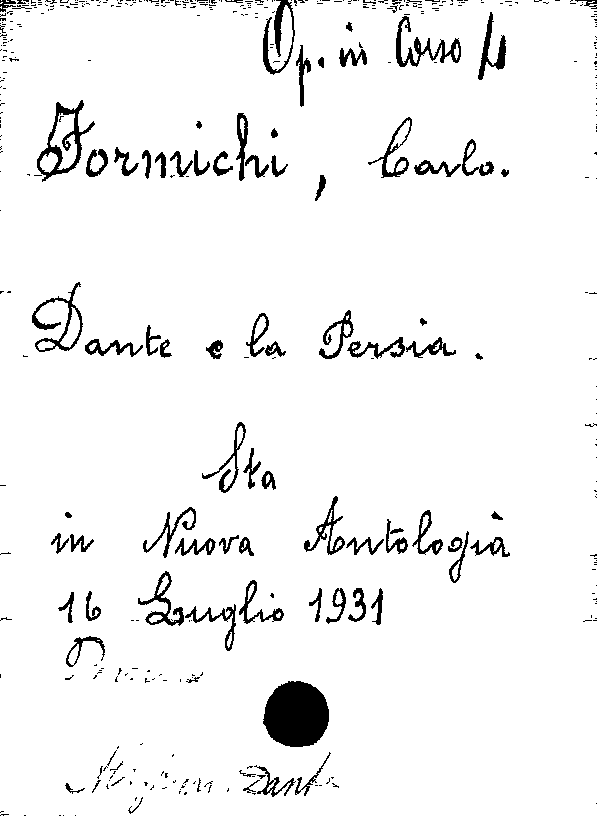 Op. in Corso 4
Formichi, Carlo.
Dante e la Persia.
Sta
in Nuova Antologia
16 Luglio 1931
Dante